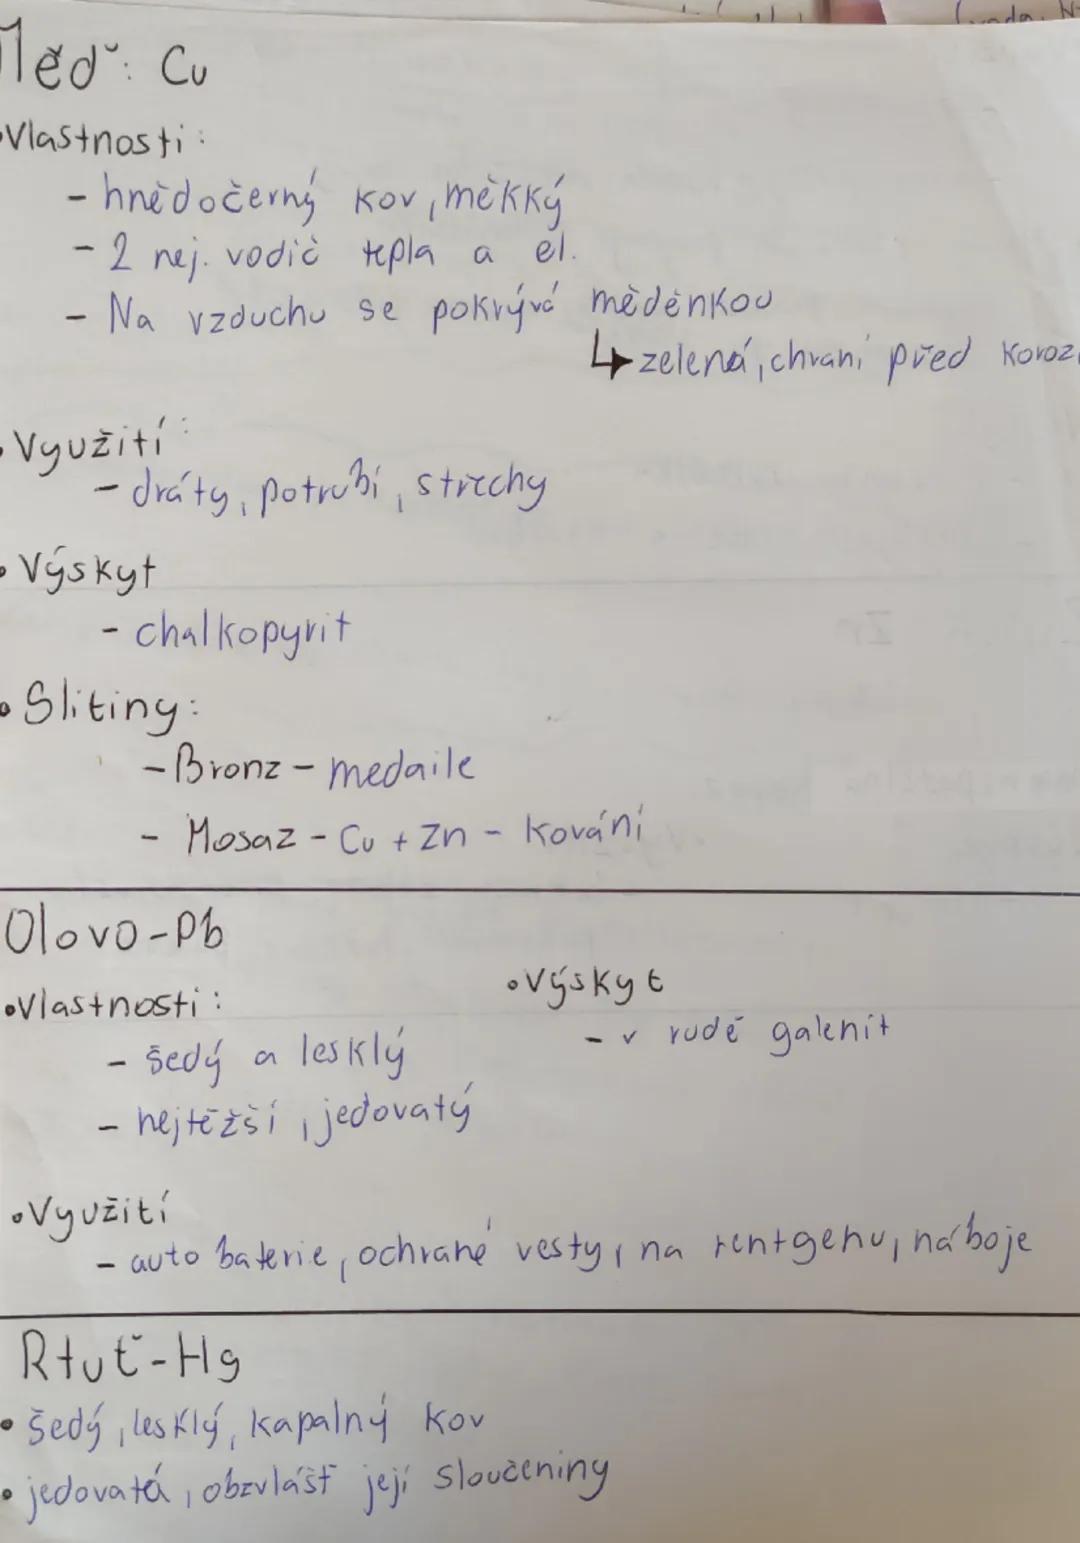 Měď: Cu
•Vlastnosti:
- hnědočerný kov, měkký
- 2 nej. vodič tepla a el.
- Na vzduchu se pokrývá měděnkou
↳ zelená, chraní před koroz
•Využití:
- dráty, potrubí, střechy
•Výskyt
- chalkopyrit
•Slitiny:
- Bronz - medaile
- Mosaz - Cu + Zn - kování
Olovo-Pb
•Vlastnosti:
- šedý a lesklý
- nejtěžší, jedovatý
•Výskyt
- v rudě galenit
•Využití
- auto baterie, ochrané vesty, na rentgenu, náboje
Rtuť-Hg
• šedý, lesklý, kapalný kov
• jedovatá, obzvlášť její sloučeniny